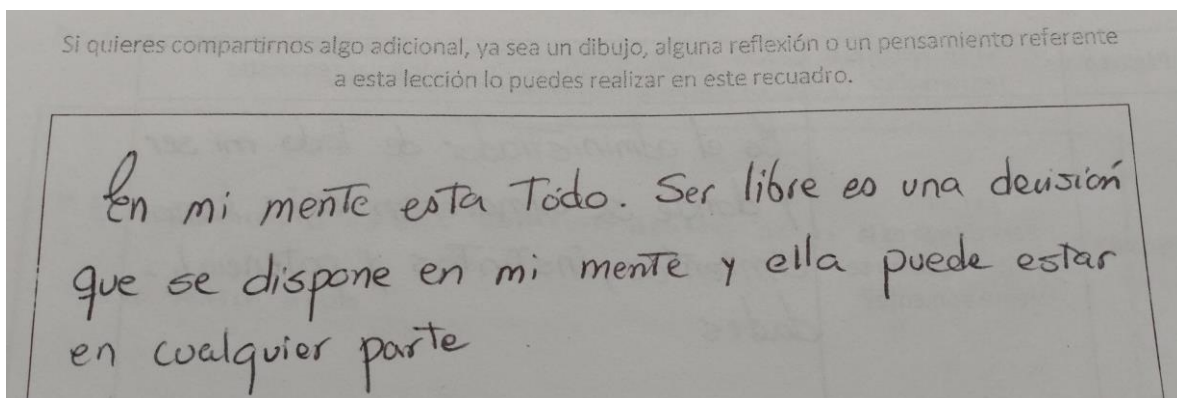 Si quieres compartirnos algo adicional, ya sea un dibujo, alguna reflexión o un pensamiento referente
a esta lección lo puedes realizar en este recuadro.
En mi mente esta Todo. Ser libre es una decisión
que se dispone en mi mente y ella puede estar
en cualquier parte